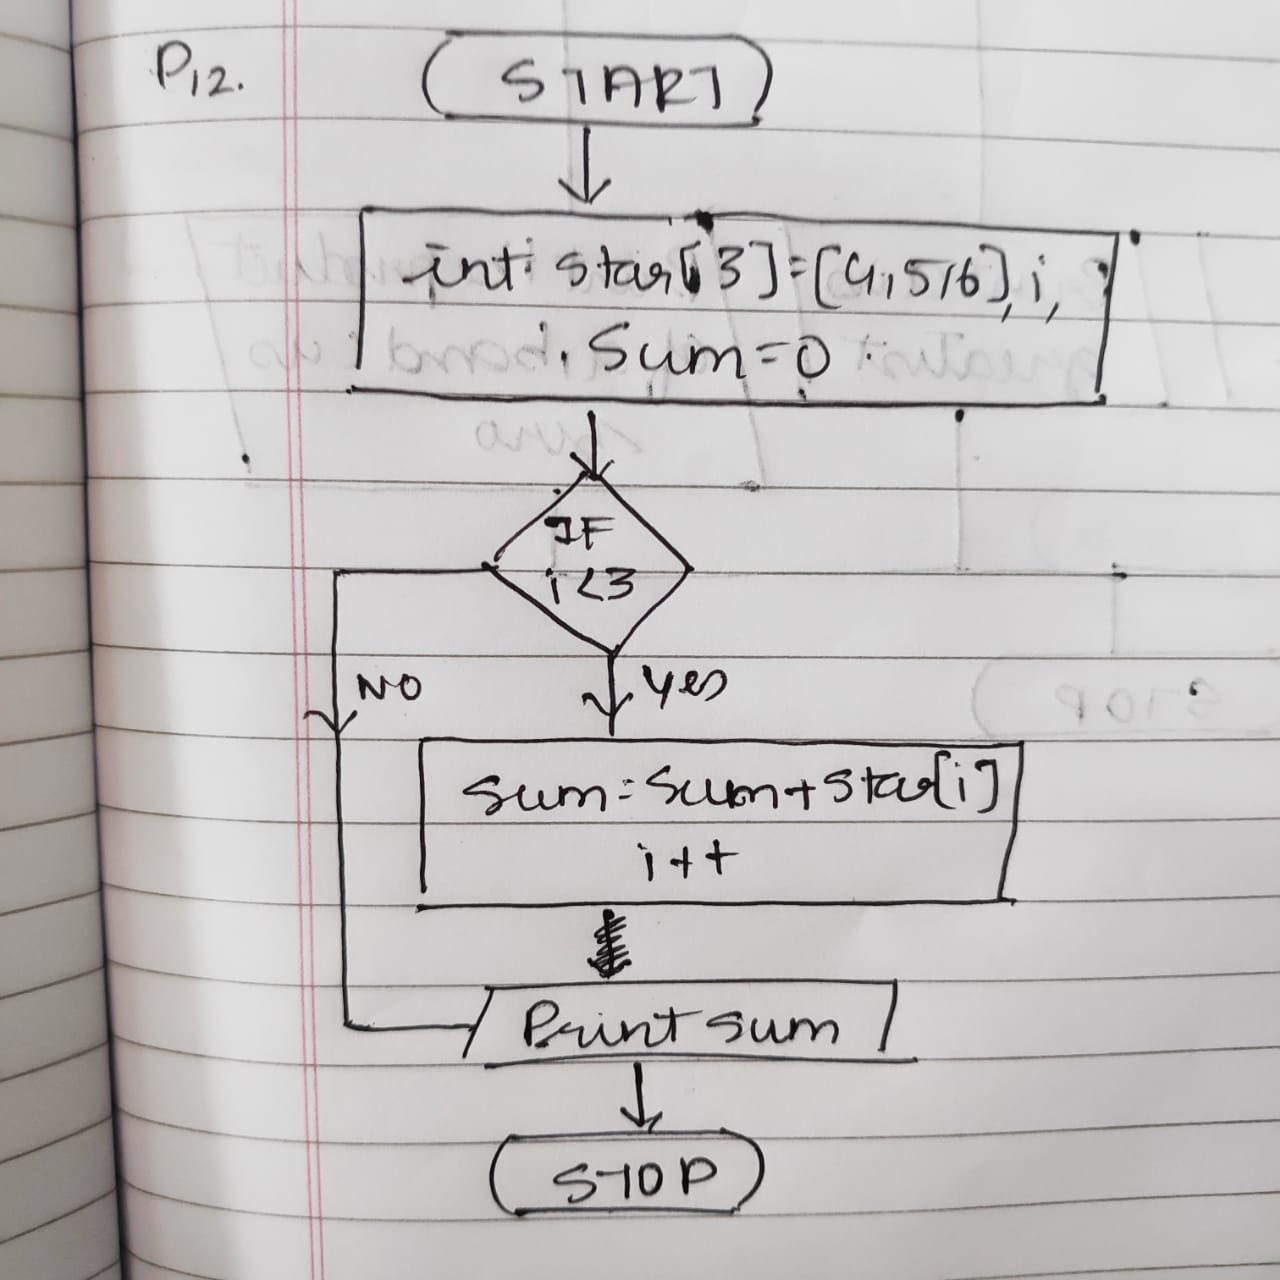 P12.
START
int star[3]=[4,5,6],i,
Sum=0
IF
i<3
NO
Yes
Sum=Sum+star[i]
i++
Print sum
STOP